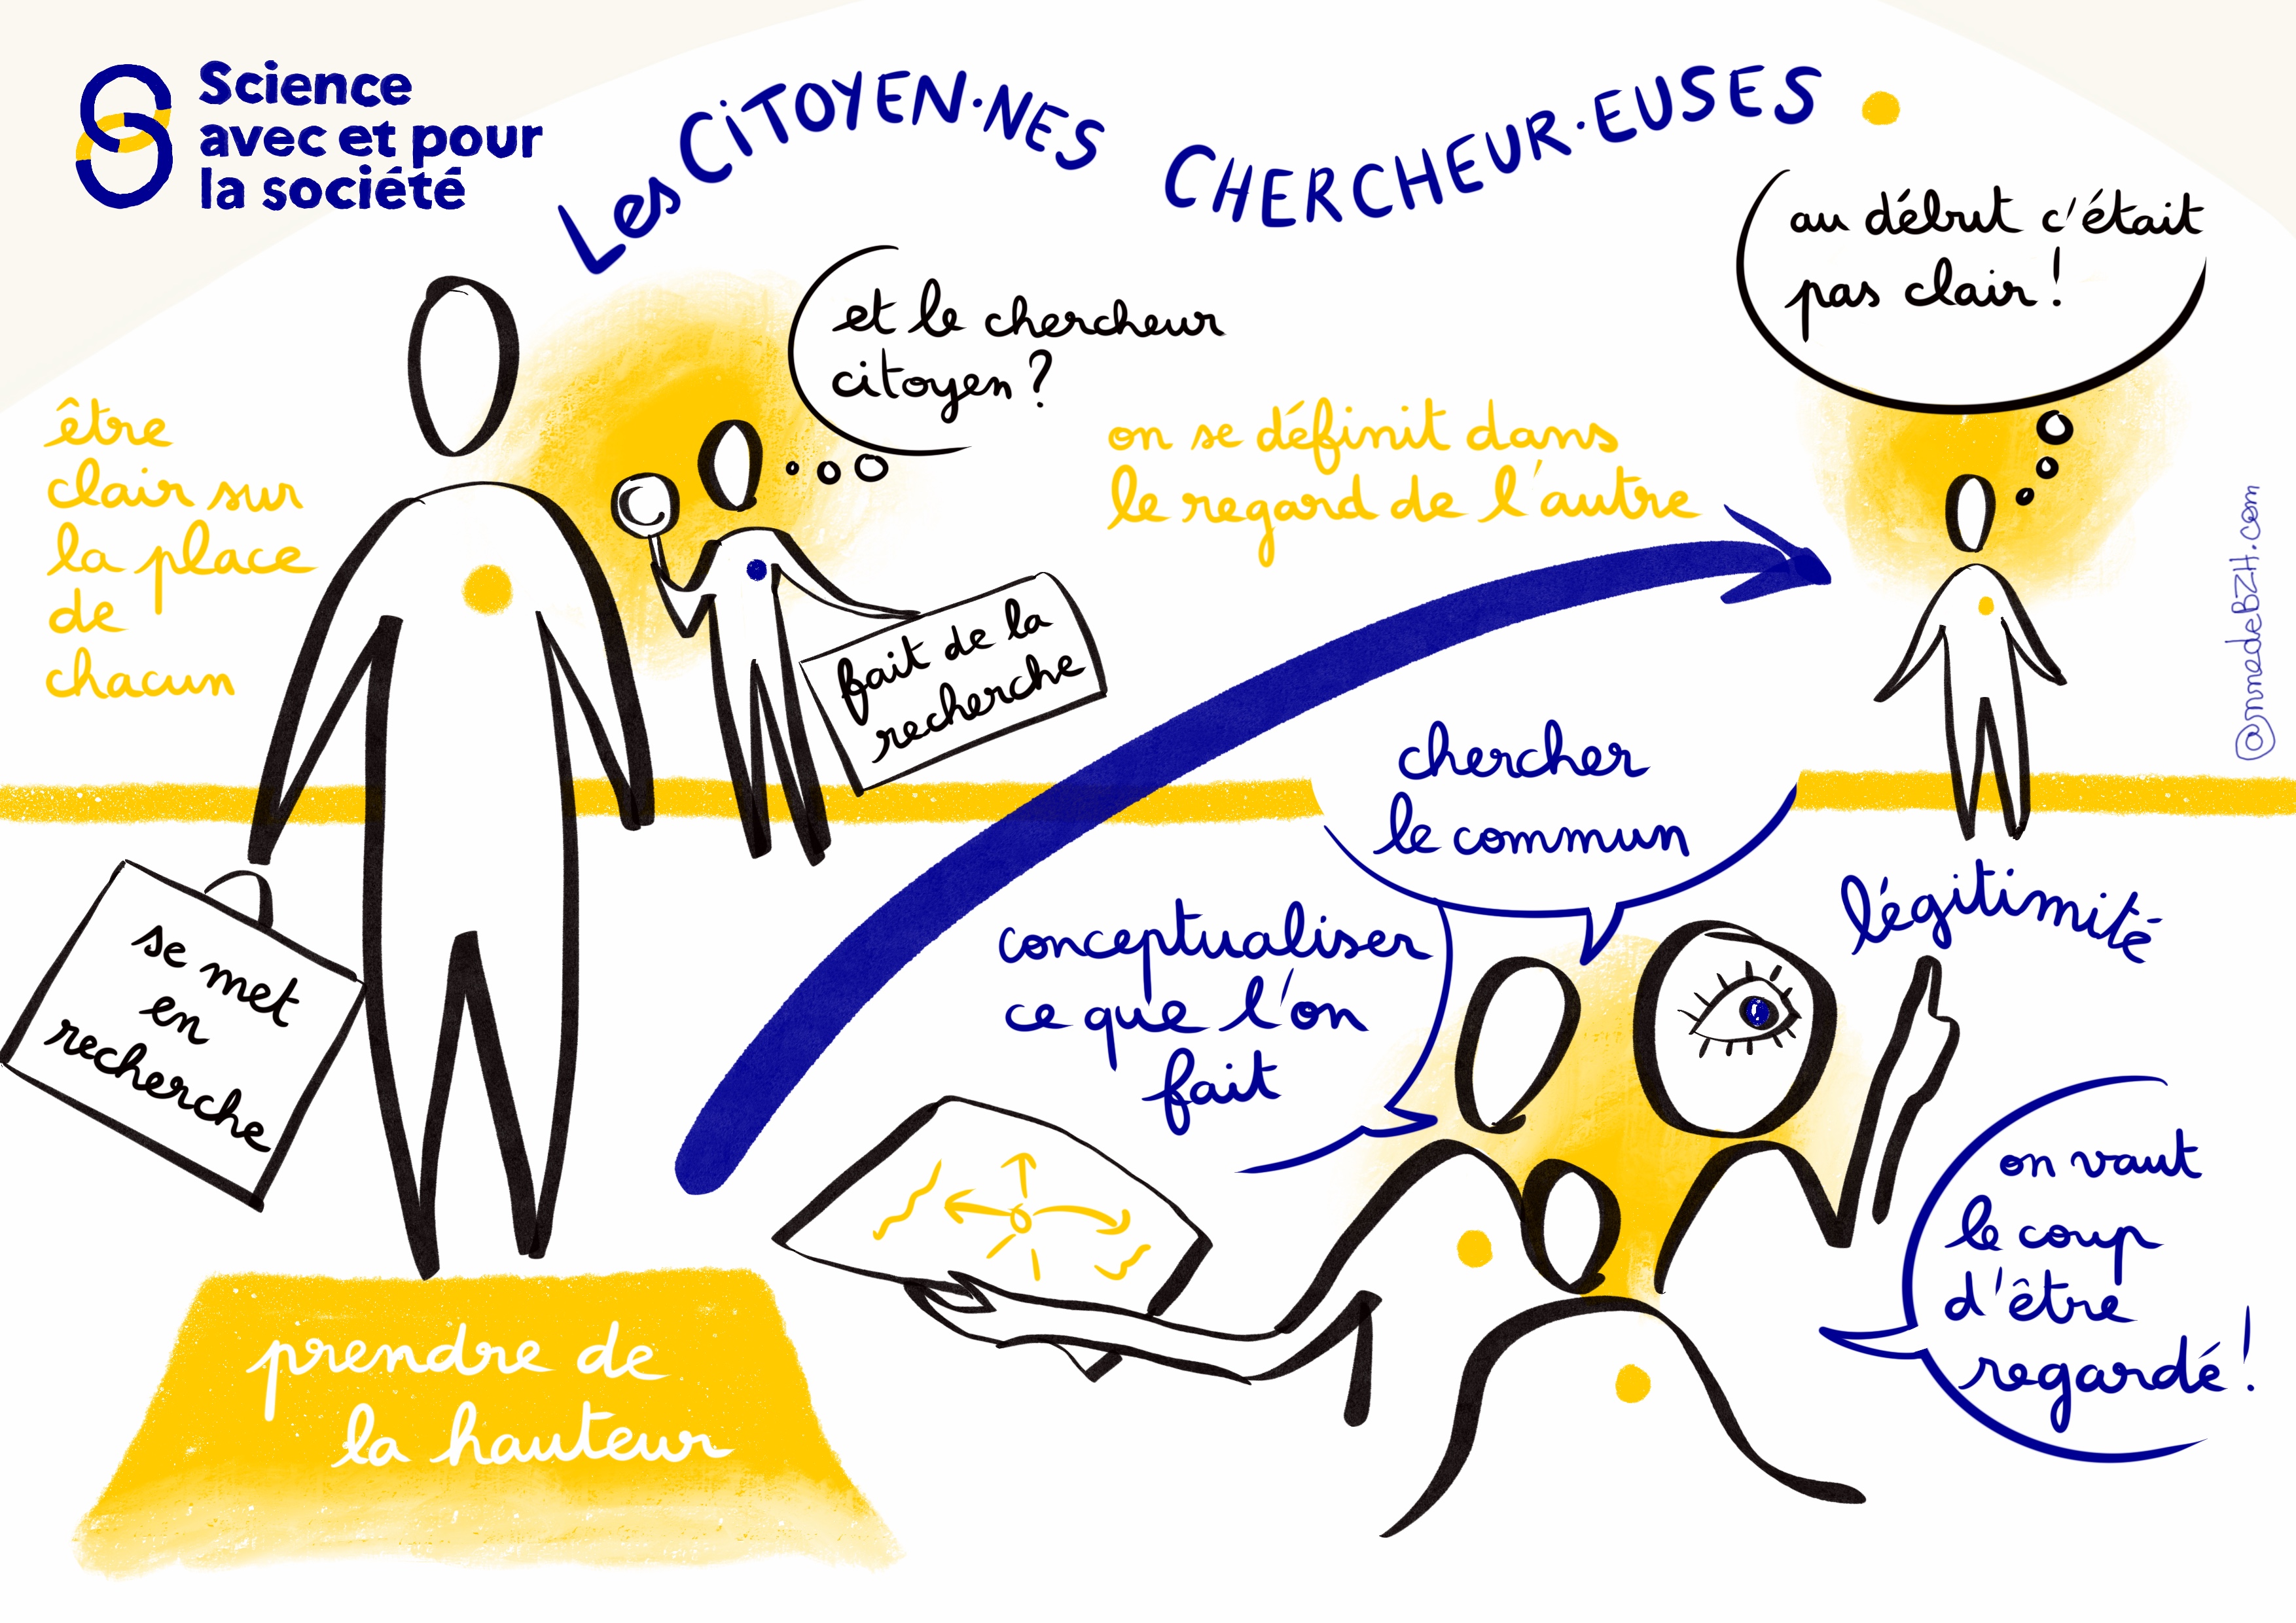 Science
avec et pour
la société
Les CiTOYEN·NES CHERCHEUR·EUSES
au début c'était
pas clair !
et le chercheur
citoyen ?
être
clair sur
la place
de
chacun
on se définit dans
le regard de l'autre
fait de la
recherche
@annedeBZH.com
chercher
le commun
légitimité
conceptualiser
ce que l'on
fait
se met
en
recherche
on vaut
le coup
d'être
regardé !
prendre de
la hauteur